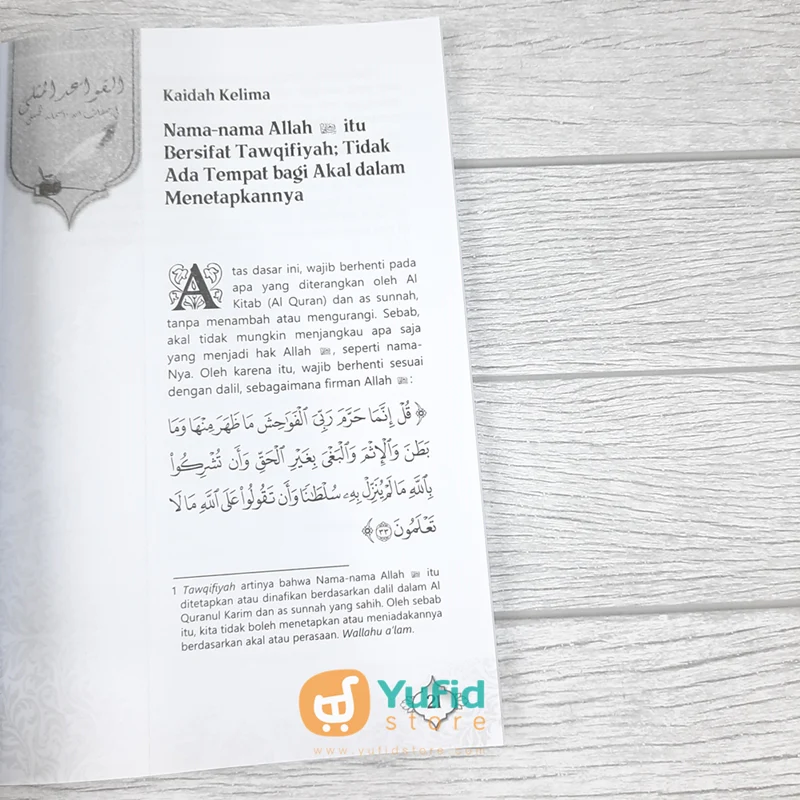 القواعد المثلى
Kaidah Kelima
Nama-nama Allah ﷻ itu
Bersifat Tawqifiyah; Tidak
Ada Tempat bagi Akal dalam
Menetapkannya
Atas dasar ini, wajib berhenti pada
apa yang diterangkan oleh Al
Kitab (Al Quran) dan as sunnah,
tanpa menambah atau mengurangi. Sebab,
akal tidak mungkin menjangkau apa saja
yang menjadi hak Allah ﷻ, seperti nama-
Nya. Oleh karena itu, wajib berhenti sesuai
dengan dalil, sebagaimana firman Allah ﷻ:
﴿ قُلْ إِنَّمَا حَرَّمَ رَبِّيَ ٱلْفَوَٰحِشَ مَا ظَهَرَ مِنْهَا وَمَا
بَطَنَ وَٱلْإِثْمَ وَٱلْبَغْىَ بِغَيْرِ ٱلْحَقِّ وَأَن تُشْرِكُوا۟
بِٱللَّهِ مَا لَمْ يُنَزِّلْ بِهِۦ سُلْطَٰنًا وَأَن تَقُولُوا۟ عَلَى ٱللَّهِ مَا لَا
تَعْلَمُونَ ٣٣ ﴾
1 Tawqifiyah artinya bahwa Nama-nama Allah ﷻ itu
ditetapkan atau dinafikan berdasarkan dalil dalam Al
Quranul Karim dan as sunnah yang sahih. Oleh sebab
itu, kita tidak boleh menetapkan atau meniadakannya
berdasarkan akal atau perasaan. Wallahu a'lam.
21
Yufid
store
www.yufidstore.com